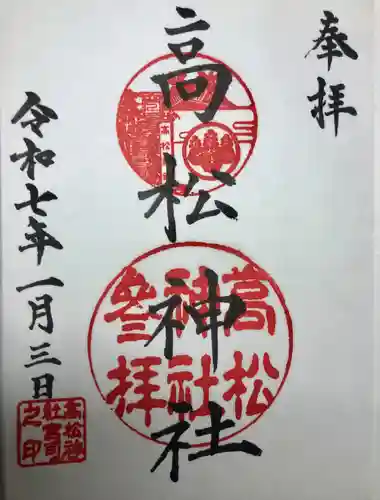 奉拝
高松神社
高松
神社
参拝
高松神社
令和七年一月三日
高松神
社宮司
之印